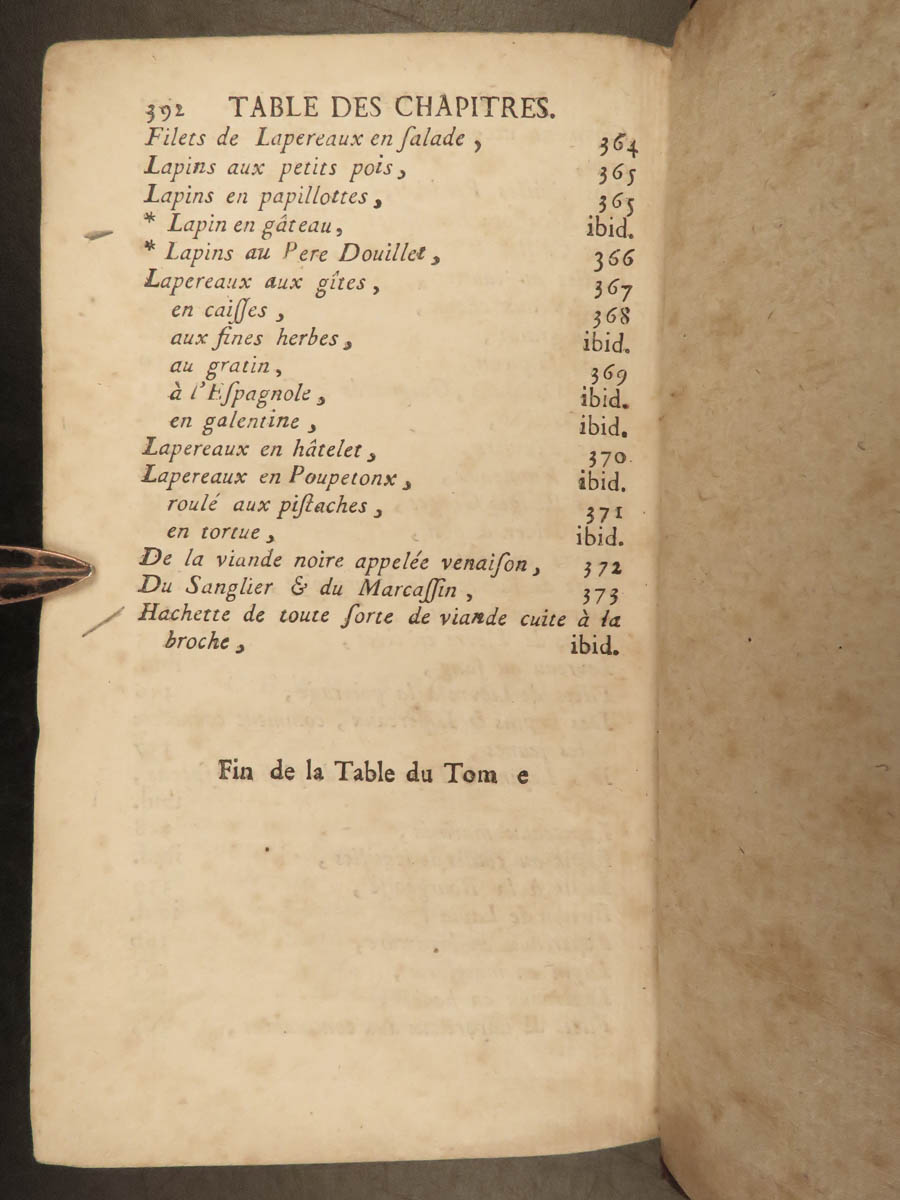 392 TABLE DES CHAPITRES.
Filets de Lapereaux en ſalade, 364
Lapins aux petits pois, 365
Lapins en papillottes, 365
* Lapin en gâteau, ibid.
* Lapins au Pere Douillet, 366
Lapereaux aux gîtes, 367
en caiſſes, 368
aux fines herbes, ibid.
au gratin, 369
à l'Eſpagnole, ibid.
en galentine, ibid.
Lapereaux en hâtelet, 370
Lapereaux en Poupetonx, ibid.
roulé aux piſtaches, 371
en tortue, ibid.
De la viande noire appelée venaiſon, 372
Du Sanglier & du Marcaſſin, 373
Hachette de toute ſorte de viande cuite à la
broche, ibid.
Fin de la Table du Tom e